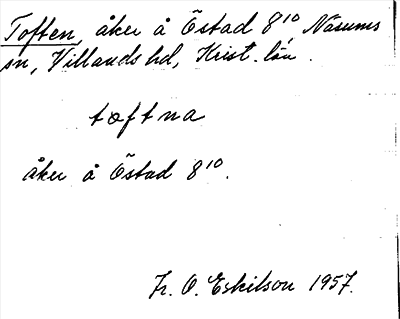 Toften, åker å Östad 8¹⁰, Näsums
sn, Villands hd, Krist. län.
toftna
åker å Östad 8¹⁰.
Fr. O. Eskilson 1957.